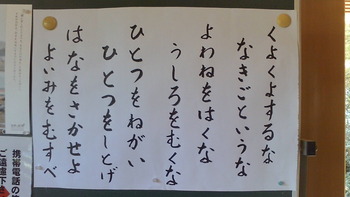 くよくよするな
なきごというな
よわねをはくな
うしろをむくな
ひとつをねがい
ひとつをしとげ
はなをさかせよ
よいみをむすべ
携帯電話の
ご遠慮下